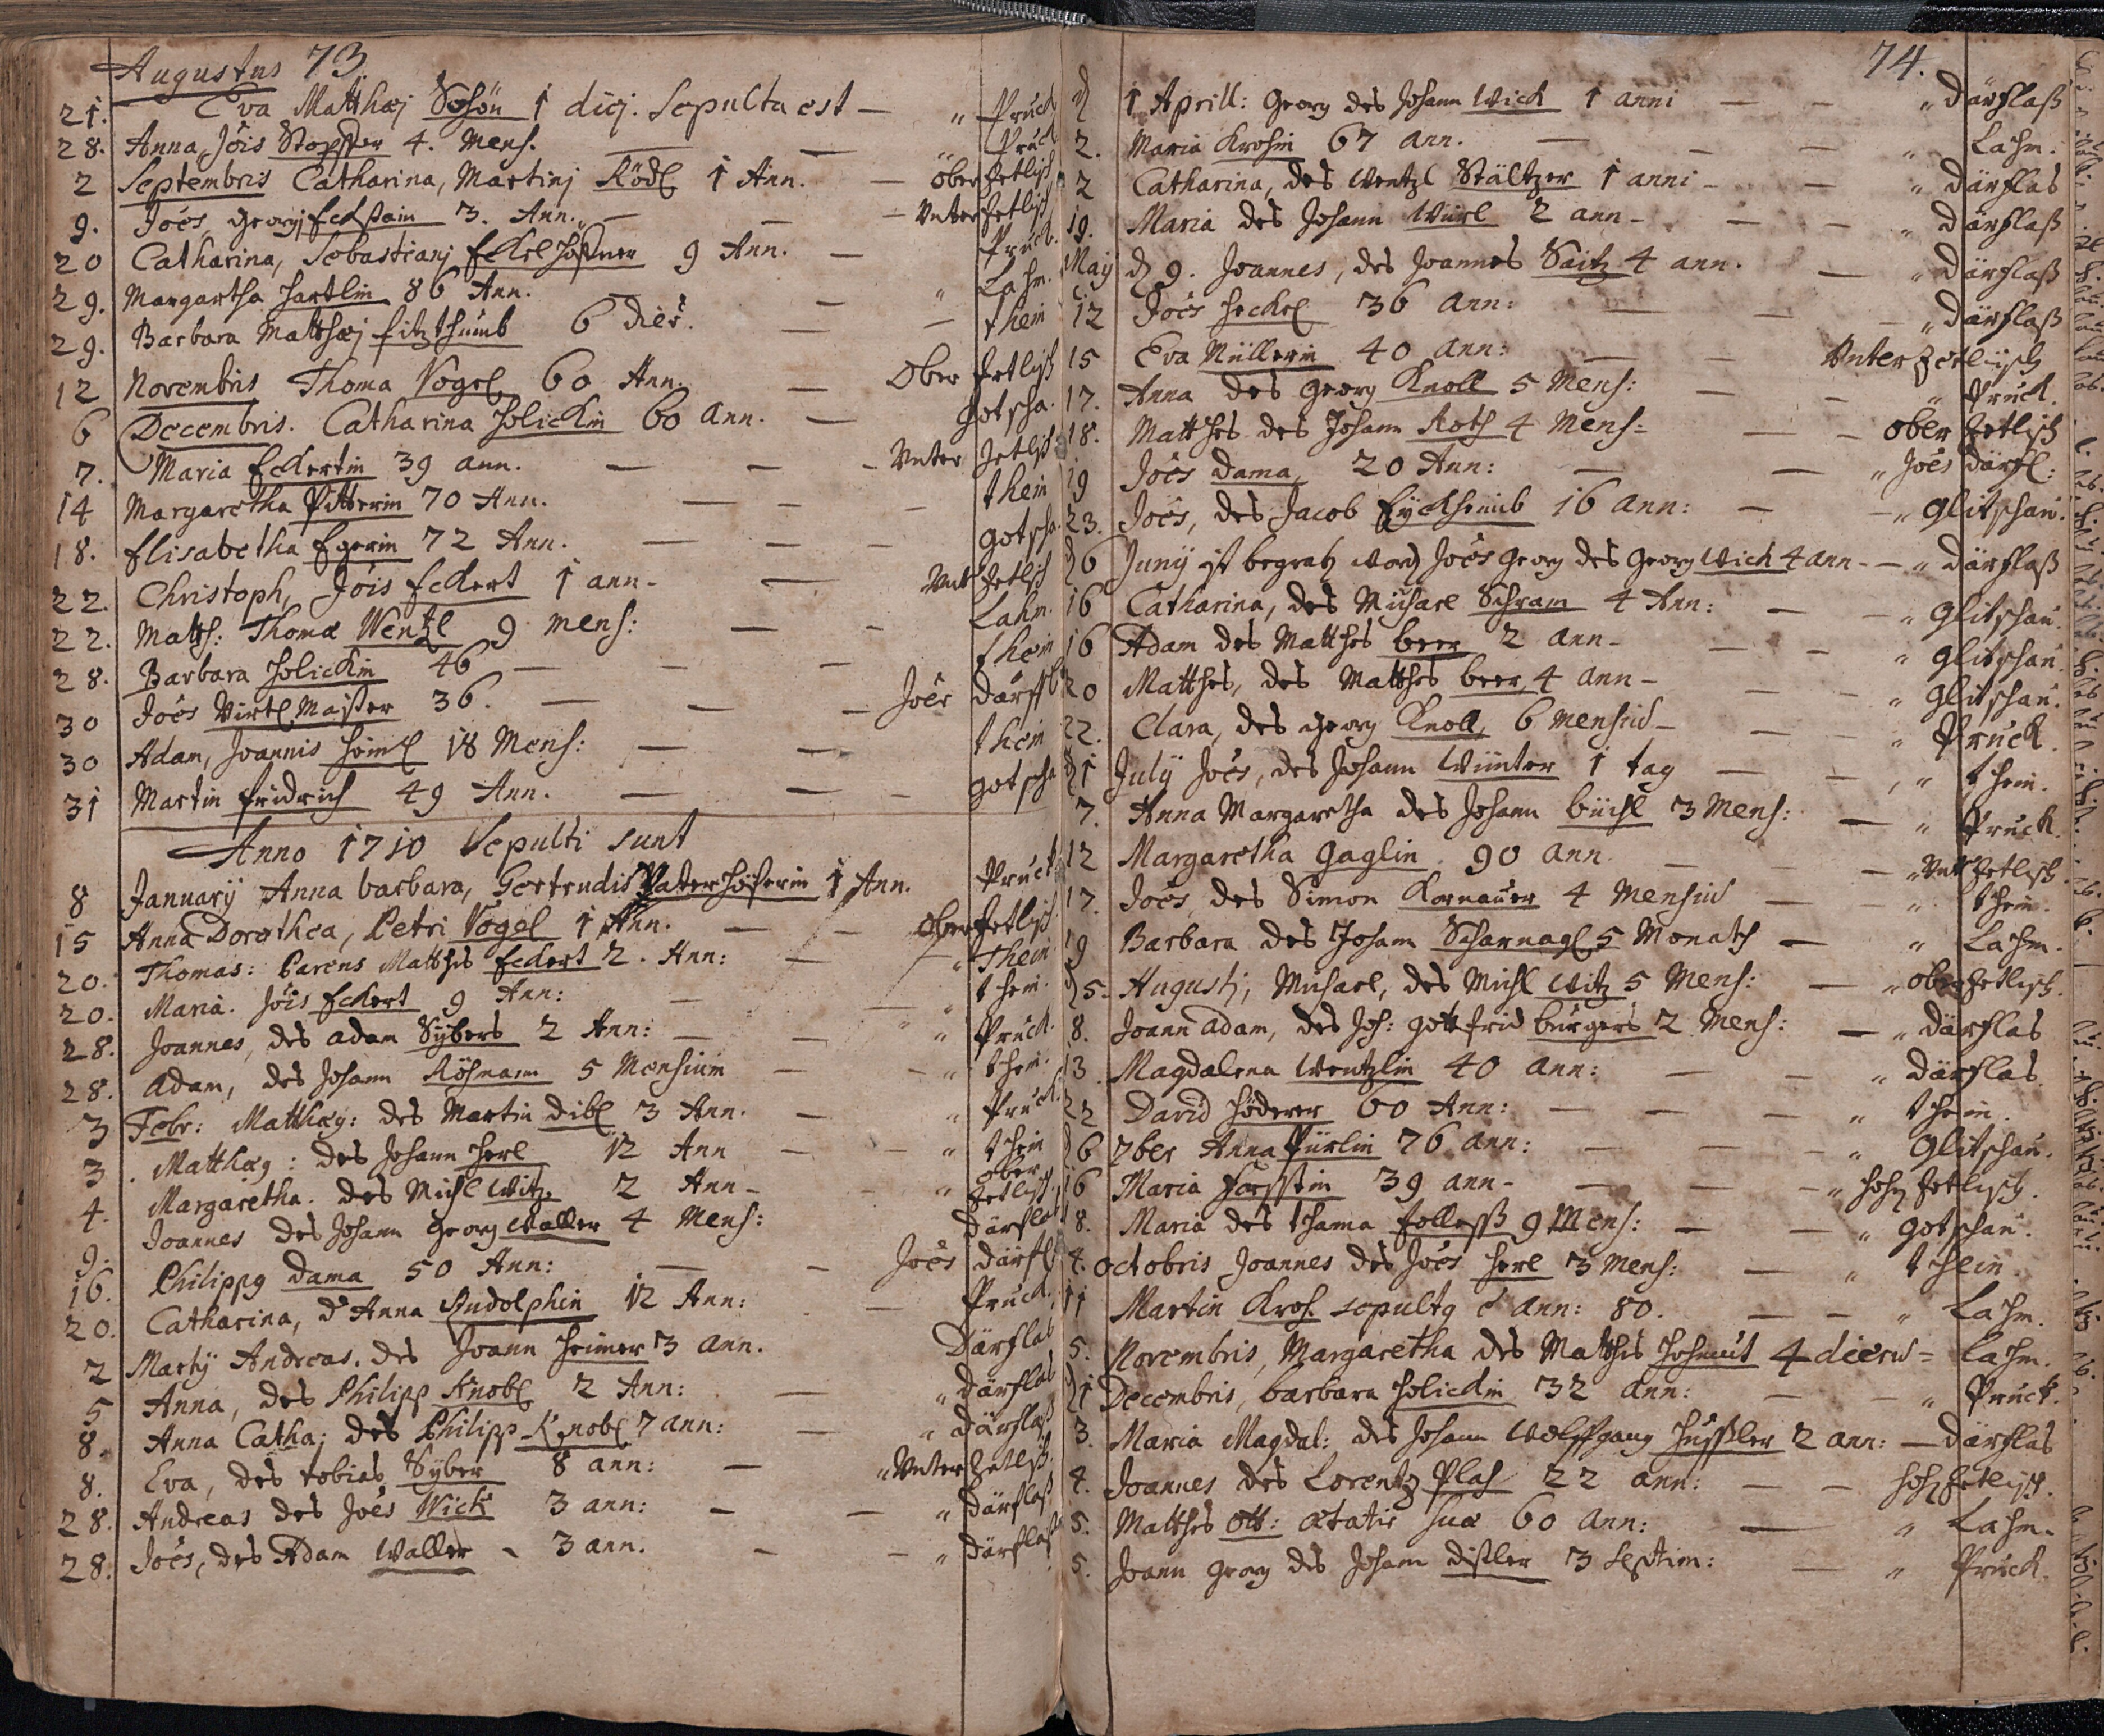 Augustus 73
21. Eva Matthæj Schön 1 diej. Sepulta est — " Pruck
28. Anna, Jôis Stopffer 4. Mens. — — " Pruck
2 Septembris Catharina, Martinj Ködl 1 Ann. — ober Zetlisch
9. Joês, Georgj Eckstain 3. Ann. — — Unter Zetlisch
20 Catharina, Sebastianj 9 Ann. — Pruck.
29. Margartha Hartlin 86 Ann. — — " Lahm.
29. Barbara Matthæj Fitzthumb 6 dier. — — thein
12 Novembris Thoma Vogel 60 Ann. — Ober Zetlisch
6 Decembris. Catharina Holickin 60 ann. — gotscha.
7. Maria Eckertin 39 ann. — — — Unter Zetlisch
14 Margaretha Pitterin 70 Ann. — — — thein
18. Elisabetha Egerin 72 Ann. — — — gotscha.
22. Christoph, Jôis Eckert 1 ann — — Unt Zetlisch
22. Matth: Thomæ Wentzl 9 mens: — — Lahm.
28. Barbara Holickin 46 — — — thein
30 Joês Virtl Maister 36. — — — Joês därffl
30 Adam, Joannis Heinl 18 Mens: — — thein
31 Martin Fridrich 49 Ann. — — — gotscha
Anno 1710 Sepulti sunt
8 Januarÿ Anna barbara, Gertrudis 1 Ann. Pruck.
15 Anna Dorothea, Petri Vogel 1 Ann. — — Ober Zetlisch
20. Thomas: Parens Matthes Eckert 2. Ann: — — " Thein
20. Maria. Jôis Eckert 9 Ann: — — " thein.
28. Joannes, des adam Sÿbers 2 Ann: — — " Pruck.
28. Adam, des Johann 5 Mensium — — " thein.
3 Febr: Matthæg: des Martin dibl 3 Ann. — " Pruck.
3. Matthæg: des Johann Herl 12 Ann — — " thein
4. Margaretha. des Michl Witz 2 Ann — — " ober Zetlisch.
9. Joannes des Johann Georg Waller 4 Mens: därflas
16. Philippg Dama 50 Ann: — — Joês därfl
20. Catharina, d' Anna Rudolphin 12 Ann: — Pruck.
2 Martÿ Andreas. des Joann Heimer 3 ann. Därflas
5 Anna, des Philipp Knobl 2 Ann: — " därflas
8. Anna Catha: des Philipp Knobl 7 ann: — " därflaß
8. Eva, des tobias Sÿber 8 ann: — " Unter Zetlisch.
28. Andreas des Joês Wick 3 ann: — — " därflaß
28. Joês, des Adam Waller — 3 ann. — — " därflaß
74.
d 1 Aprill: Georg des Johann Wick 1 anni — — " därflaß
2. Maria Krohin 67 ann. — — — " Lahm.
2 Catharina, des Wentzl Stältzer 1 anni — — " därflas
19. Maria des Johann Würl 2 ann — — — " därflaß
Maÿ d 9. Joannes, des Joannes Saitz 4 ann. — " därflaß
12 Joês Heckel 36 ann: — — — " därflaß
15 Eva Müllerin 40 ann: — — Unter Zetlisch
17. Anna des Georg Knoll 5 Mens: — — " Pruck.
18. Matthes des Johann Roth 4 Mens: — — ober Zetlisch
19 Joês Dama, 20 Ann: — — " Joês därfl:
23. Joês, des Jacob 16 ann: — — " Glitschau.
d 6 Junÿ ist begrab word Joês Georg des Georg Wick 4 ann — — " därflaß
16 Catharina, des Michael Schram 4 Ann: — — " Glitschau.
16 Adam des Matthes beer 2 ann — — — " Glitschau.
20 Matthes, des Matthes beer, 4 ann — — — " Glitschau.
22. Clara, des Georg Knoll, 6 Mensiū — — — " Pruck.
d 1 Julÿ Joês, des Johann Winter 1 tag — — " thein.
7. Anna Margaretha des Johann büchl 3 Mens: — " Pruck.
12 Margaretha Gaglin. 90 ann. — — " Unt Zetlisch.
17. Joês, des Simon Kornauer 4 Mensiū — — " thein.
19 Barbara des Johann Scharnagl 5 Monath — " Lahm.
d 5. Augusti, Michael, des Michl Witz 5 Mens: — " ober Zetlisch.
8. Joann adam, des Joh: Gottfrid bürgers 2 Mens: — " därflas
13. Magdalena Wentzlin 40 ann: — — " därflas
22 David Höderer 60 Ann: — — — " thein.
d 6 7ber Anna Pürlin 76 ann: — — — " Glitschau.
16 Maria Forsstin 39 ann — — — " hoh Zetlisch.
18. Maria des thama 9 Mens: — — " gotschau.
4. octobris Joannes des Joês Herl 3 Mens: — " thein
11 Martin Kroh. sepultg ê ann: 80. — — " Lahm.
5. Novembris, Margaretha des Matthes 4 dierū = Lahm.
d 1 Decembris, barbara Holickin 32 ann: — — " Pruck.
3. Maria Magdal: des Johann Wolffgang Husßler 2 ann: — därflas
4. Joannes des Lorentz Plach 22 ann: — — hoh Zetlisch.
5. Matthes Ott: ætatis suæ 60 Ann: — " Lahm.
5. Joann Georg des Johann distler 3 Septim: — " Pruck.